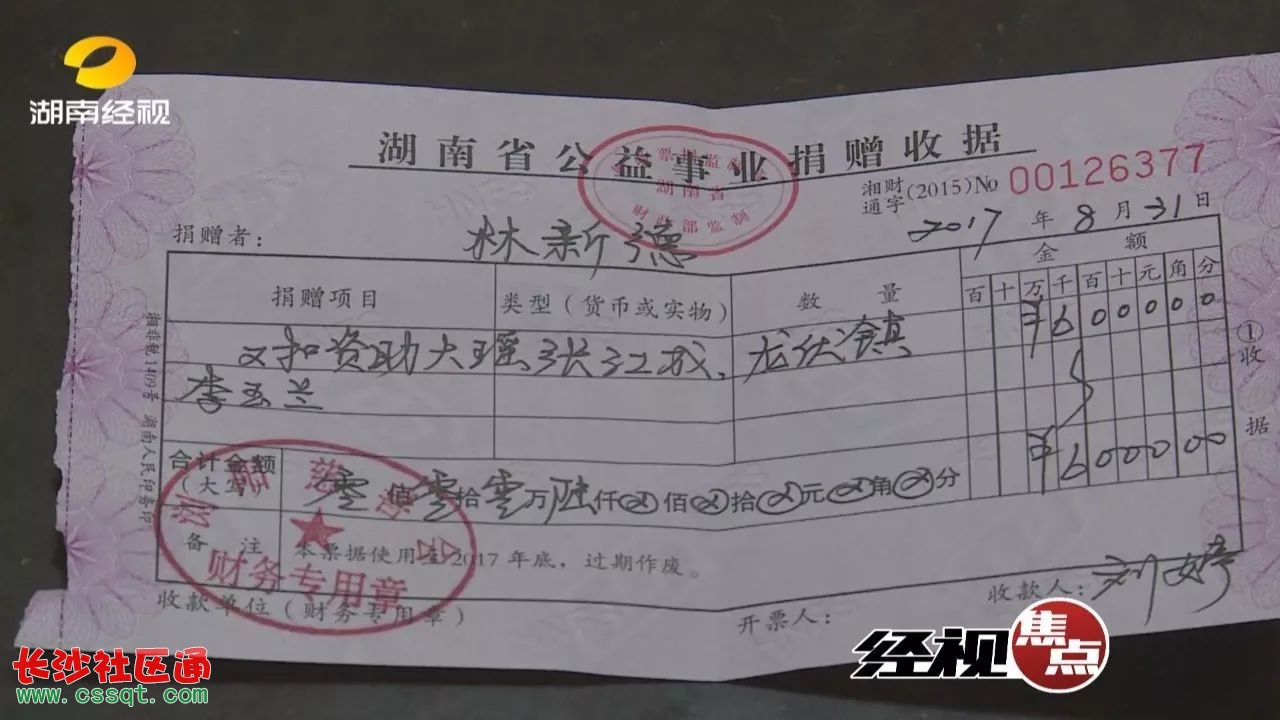 湖南经视
湖南省公益事业捐赠收据
票据监制
湖南省
财政部监制
湘财通字(2015)No 00126377
2017年8月31日
捐赠者： 林新德
捐赠项目 类型（货币或实物） 数量 金额
百十万千百十元角分
对扣资助大瑶张江成、龙伏镇 ¥600000
李玉兰
¥600000
合计金额（大写） 零佰零拾零万陆仟⊗佰⊗拾⊗元⊗角⊗分
备注 本票据使用至2017年底，过期作废。
收款单位（财务专用章） 开票人： 收款人：刘婷
浏阳慈善会
财务专用章
①收据
湘非税1419号 湖南人民印务印
经视焦点
长沙社区通
www.cssqt.com